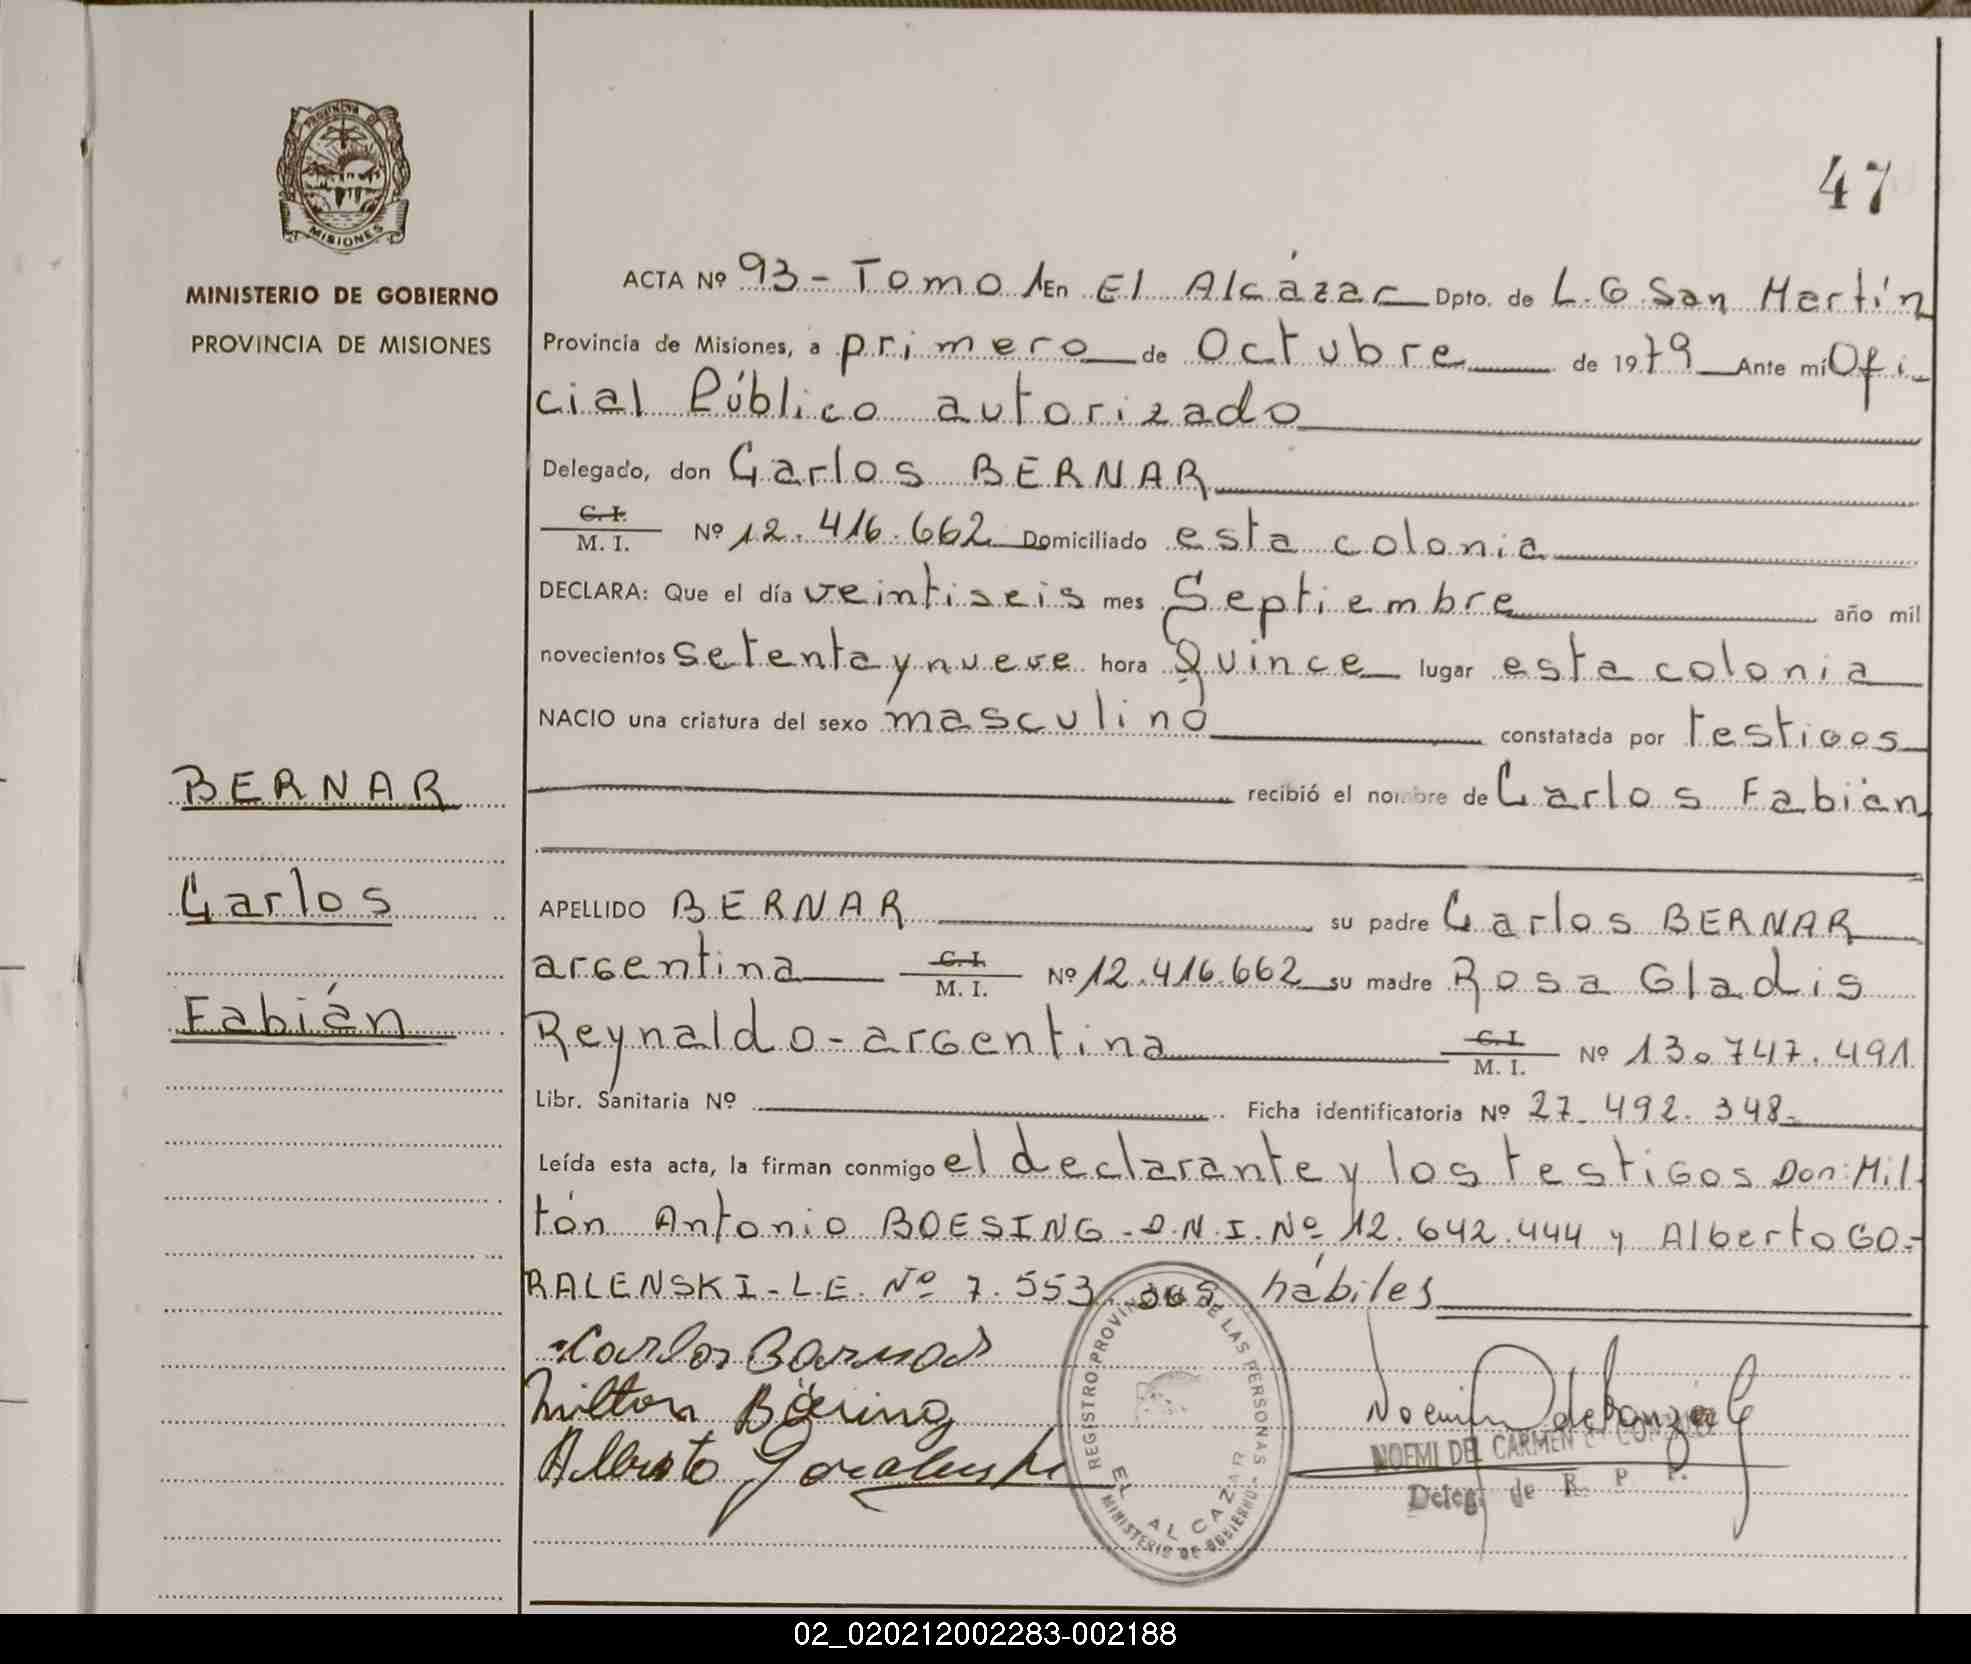 PROVINCIA DE
MISIONES
MINISTERIO DE GOBIERNO
PROVINCIA DE MISIONES
47
ACTA Nº 93 - Tomo 1 En El Alcázar Dpto. de L. G San Martín
Provincia de Misiones, a primero de Octubre de 1979 Ante mí Ofi-
cial Público autorizado
Delegado, don Carlos BERNAR
C. I.
M. I. Nº 12.416.662 Domiciliado esta colonia
DECLARA: Que el día veintiseis mes Septiembre año mil
novecientos setenta y nueve hora Quince lugar esta colonia
NACIO una criatura del sexo masculino constatada por testigos
recibió el nombre de Carlos Fabián
APELLIDO BERNAR su padre Carlos BERNAR
argentina C. I. M. I. Nº 12.416.662 su madre Rosa Gladis
Reynaldo - argentina C. I. M. I. Nº 13.747.491
Libr. Sanitaria Nº Ficha identificatoria Nº 27.492.348-
Leída esta acta, la firman conmigo el declarante y los testigos Don: Mil-
tón Antonio BOESING - D.N.I. Nº 12.642.444 y Alberto GO-
RALENSKI - L.E. Nº 7.553. hábiles
BERNAR
Carlos
Fabián
Carlos Bernar
Milton Bösing
Alberto Goralenski
REGISTRO PROVINCIAL DE LAS PERSONAS
EL ALCAZAR
MINISTERIO DE GOBIERNO
Noemi de Gonzalez
NOEMI DEL CARMEN
Deleg. de R. P. P.
02_020212002283-002188